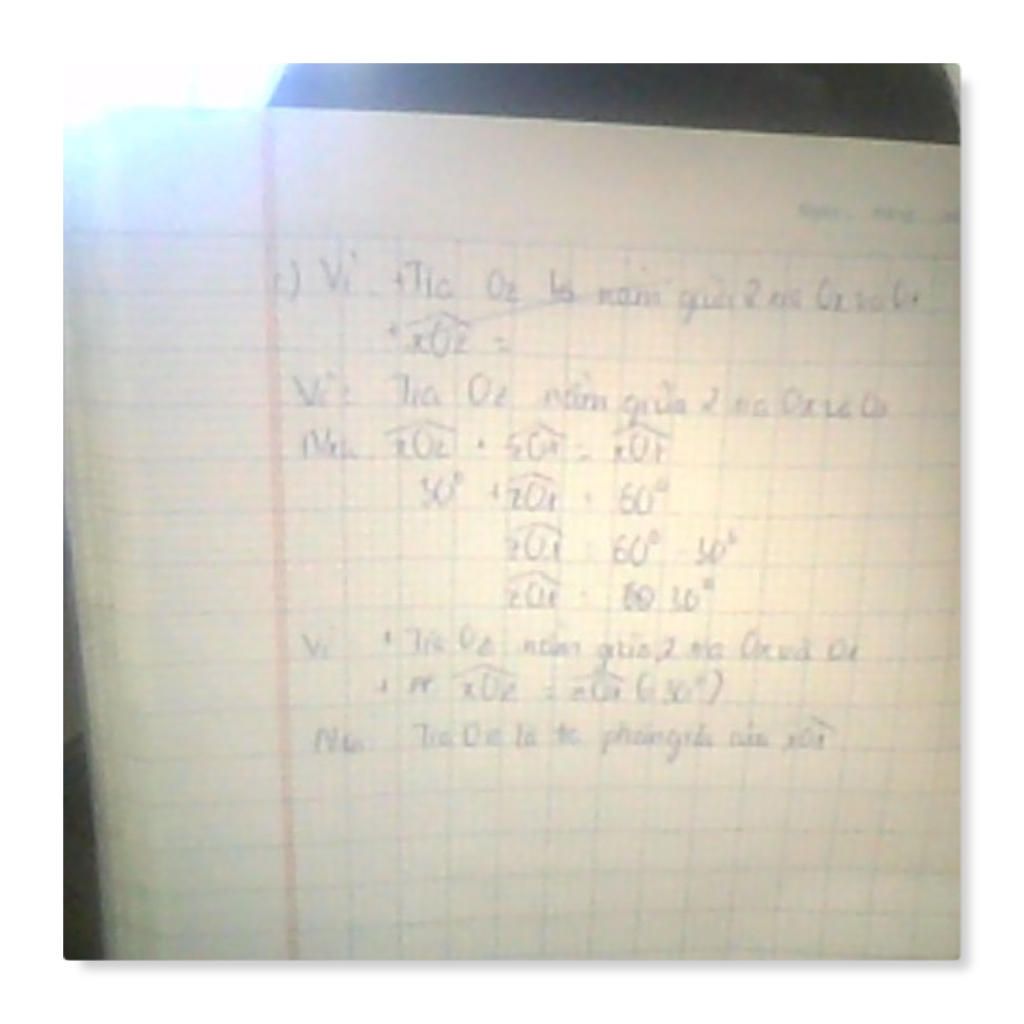 c) Vì: + Tia Oz là nằm giữa 2 tia Ox và Ot
+ xOz =
Vì: Tia Oz nằm giữa 2 tia Ox và Ot
Nên xOz + zOt = xOt
30° + zOt = 60°
zOt = 60° - 30°
zOt = 30°
Vì + Tia Oz nằm giữa 2 tia Ox và Ot
+ xOz = zOt (= 30°)
Nên Tia Oz là tia phân giác của xOt